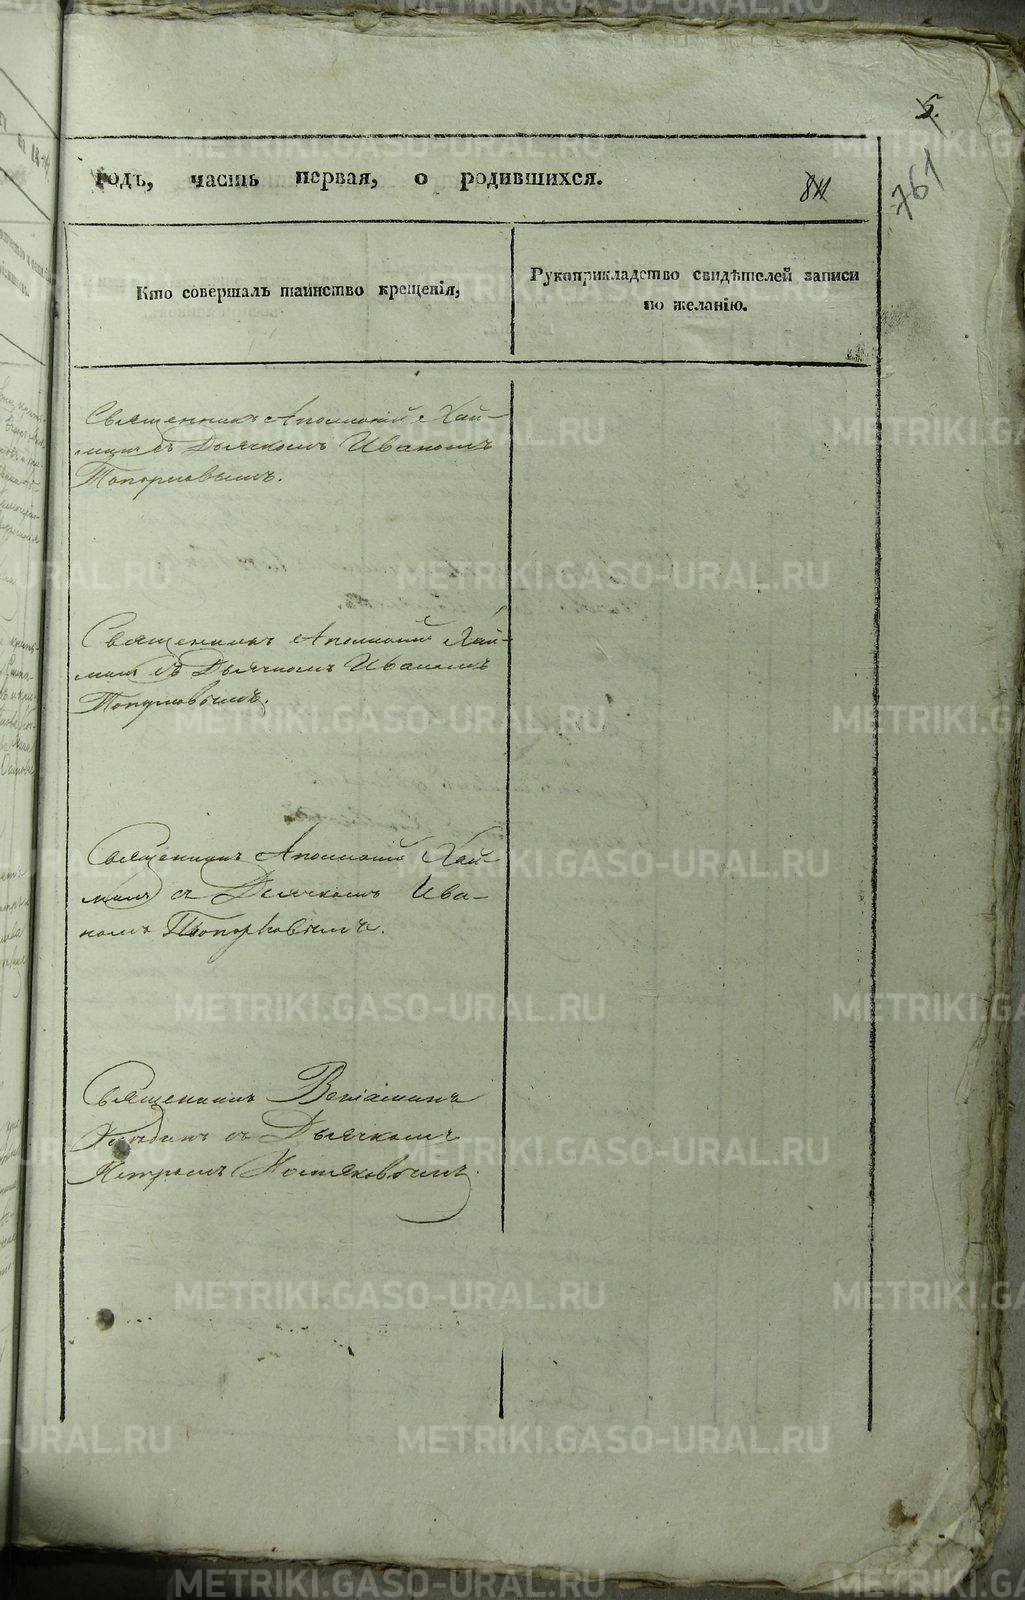 5.
761
годъ, часть первая, о родившихся.
811
Кто совершалъ таинство крещенія,
Рукоприкладство свидѣтелей записи
по желанію.
Священникъ Аполлоній Хай-
минъ съ Дьячкомъ Иваномъ
Топорковымъ.
Священникъ Аполлоній Хай-
минъ съ Дьячкомъ Иваномъ
Топорковымъ.
Священникъ Аполлоній Хай-
минъ съ Дьячкомъ Ива-
номъ Топорковымъ.
Священникъ Веніаминъ
съ Дьячкомъ
Петромъ Костяковымъ.
METRIKI.GASO-URAL.RU